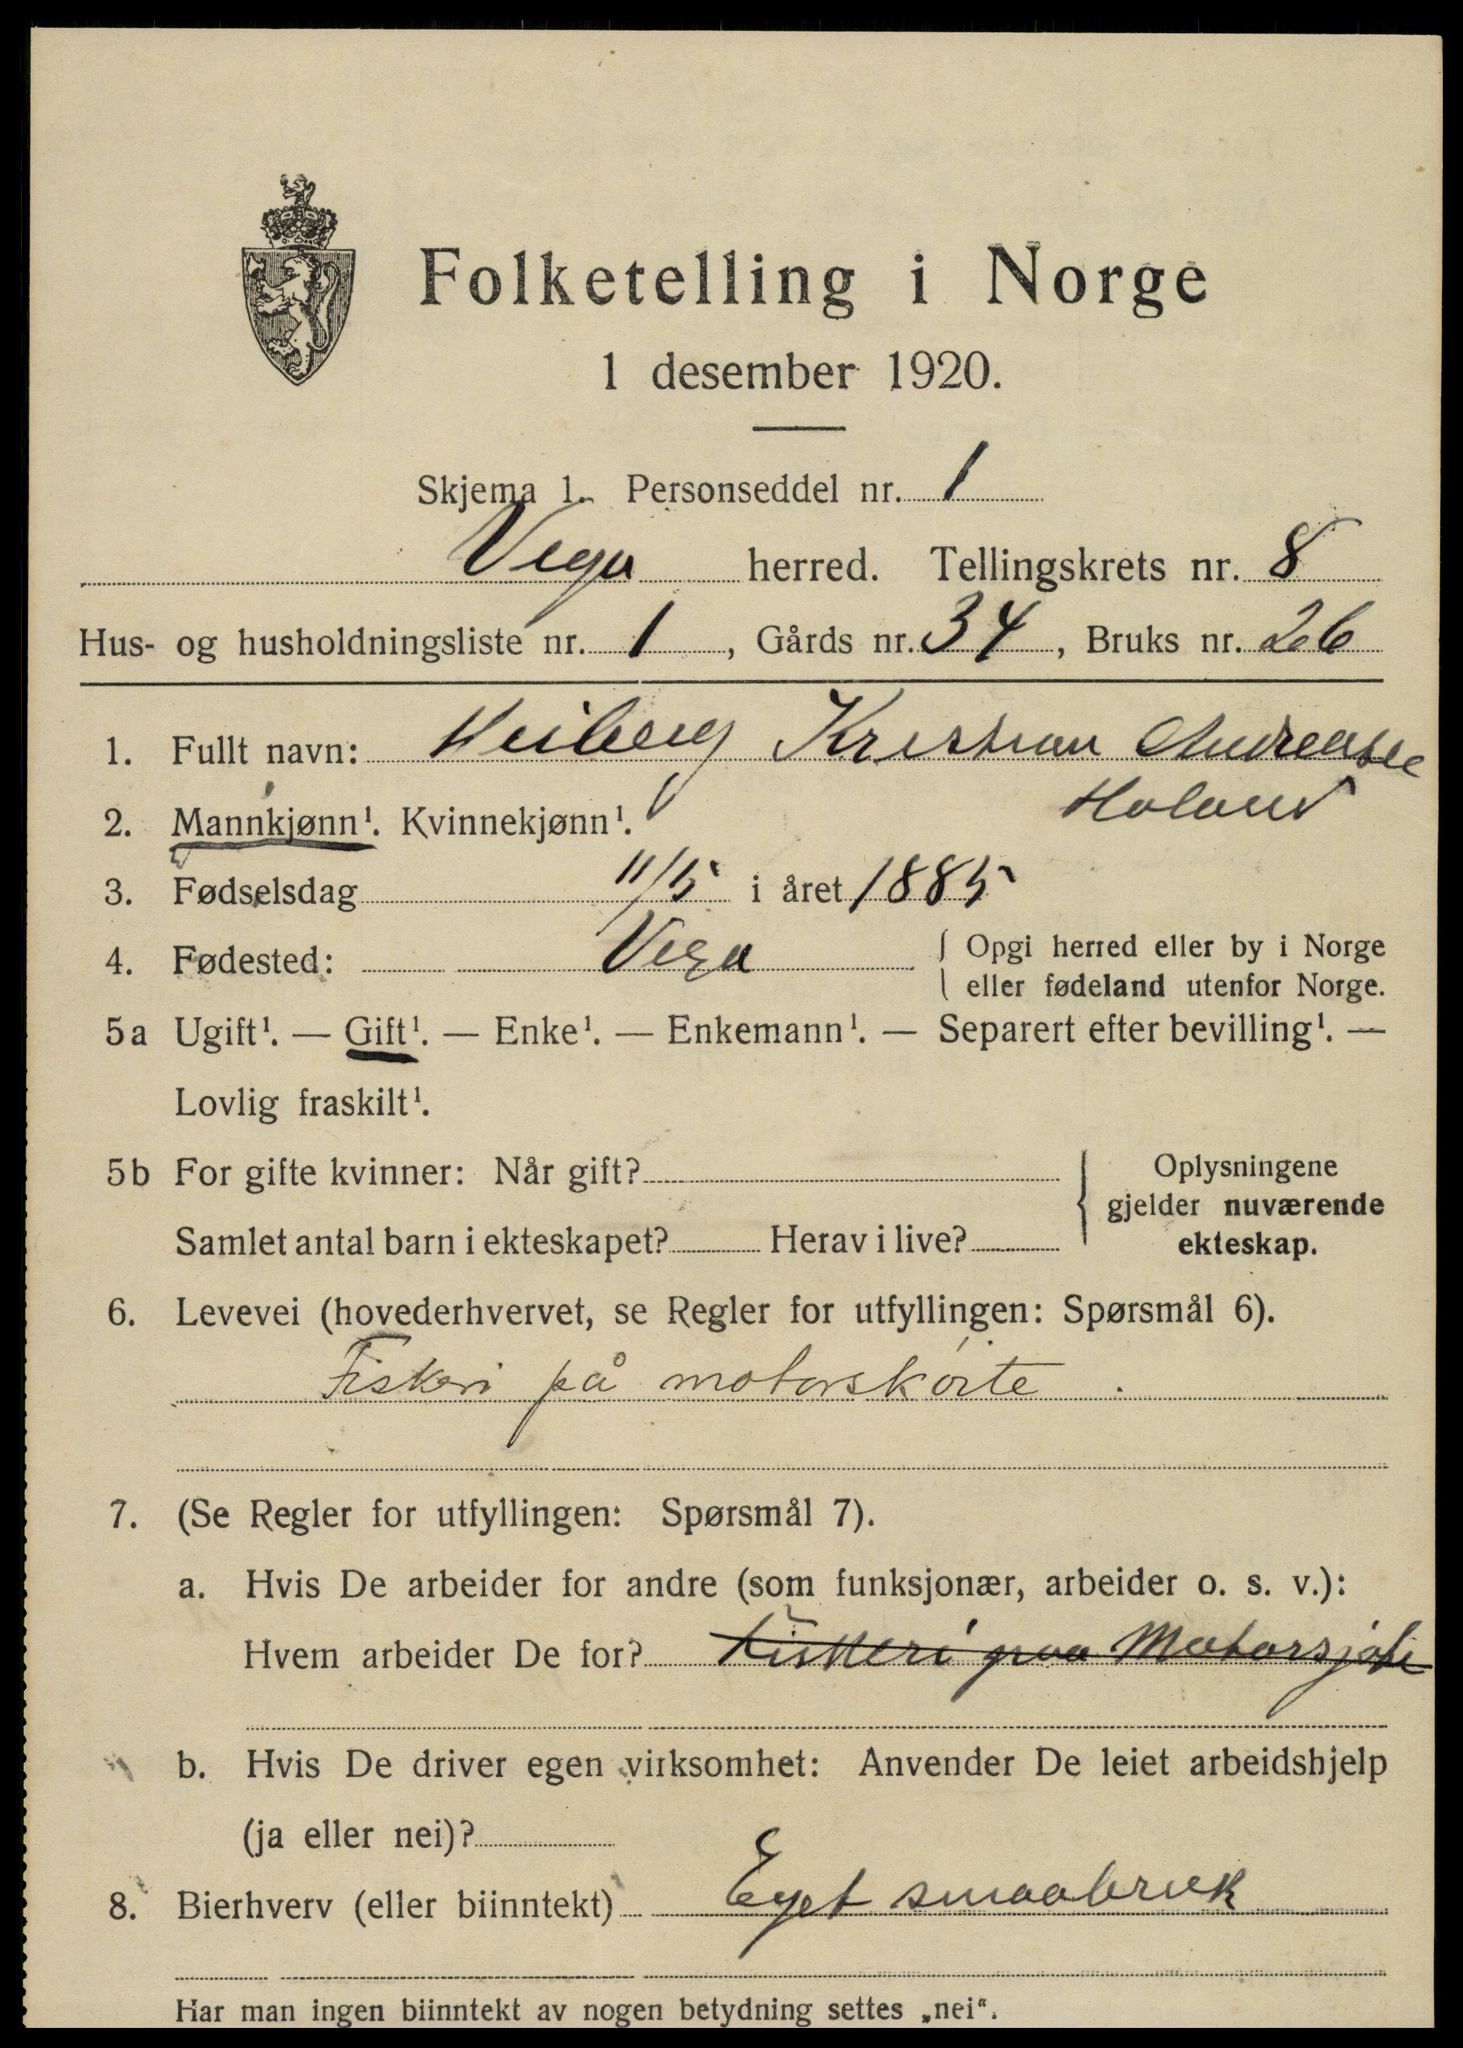 Folketelling i Norge
1 desember 1920.
Skjema 1. Personseddel nr. 1
Vega herred. Tellingskrets nr. 8
Hus- og husholdningsliste nr. 1, Gårds nr. 34, Bruks nr. 26
1. Fullt navn: Heiberg Kristian Andreas
2. Mannkjønn¹. Kvinnekjønn¹.
3. Fødselsdag 11/5 i året 1885
4. Fødested: Vega { Opgi herred eller by i Norge
eller fødeland utenfor Norge.
5a Ugift¹. — Gift¹. — Enke¹. — Enkemann¹. — Separert efter bevilling¹. —
Lovlig fraskilt¹.
5b For gifte kvinner: Når gift? { Oplysningene
gjelder nuværende
Samlet antal barn i ekteskapet? Herav i live? ekteskap.
6. Levevei (hovederhvervet, se Regler for utfyllingen: Spørsmål 6).
Fiskeri på motorskøite.
7. (Se Regler for utfyllingen: Spørsmål 7).
a. Hvis De arbeider for andre (som funksjonær, arbeider o. s. v.):
Hvem arbeider De for? Fiskeri paa
b. Hvis De driver egen virksomhet: Anvender De leiet arbeidshjelp
(ja eller nei)?
8. Bierhverv (eller biinntekt) Eget smaabruk
Har man ingen biinntekt av nogen betydning settes „nei“.